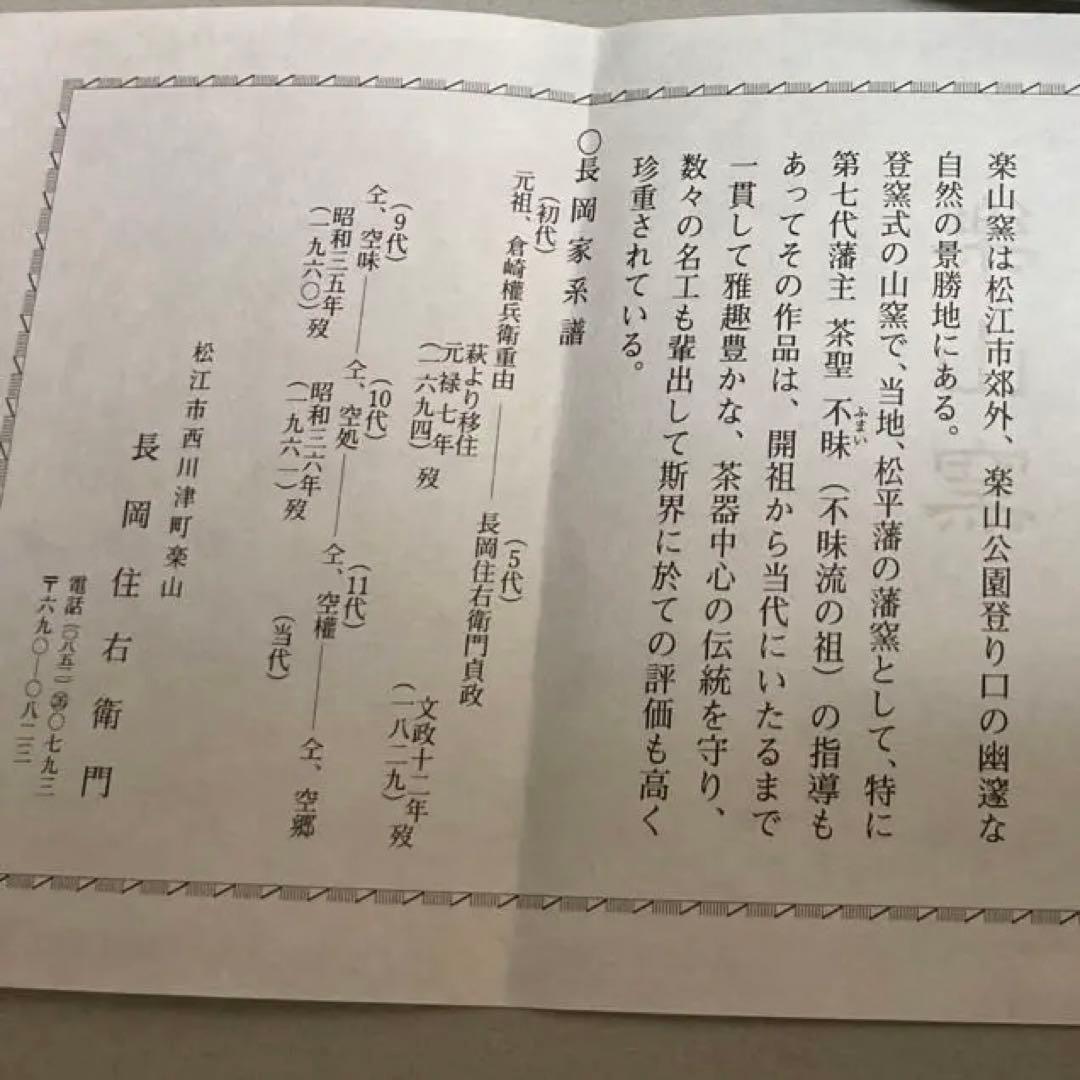 楽山窯は松江市郊外、楽山公園登り口の幽邃な
自然の景勝地にある。
登窯式の山窯で、当地、松平藩の藩窯として、特に
第七代藩主 茶聖 不昧（不昧流の祖）の指導も
ふまい
あってその作品は、開祖から当代にいたるまで
一貫して雅趣豊かな、茶器中心の伝統を守り、
数々の名工も輩出して斯界に於ての評価も高く
珍重されている。
〇長岡家系譜
（初代）
元祖、倉崎權兵衛重由
萩より移住
元禄七年
（一六九四）歿
（5代）
長岡住右衛門貞政
文政十二年
（一八二九）歿
（9代）
仝、空味
昭和三五年
（一九六〇）歿
（10代）
仝、空処
昭和三六年
（一九六一）歿
（11代）
仝、空權
（当代）
仝、空郷
松江市西川津町楽山
長岡住右衛門
電話（〇八五二）㉖〇七九三
〒六九〇―〇八二三